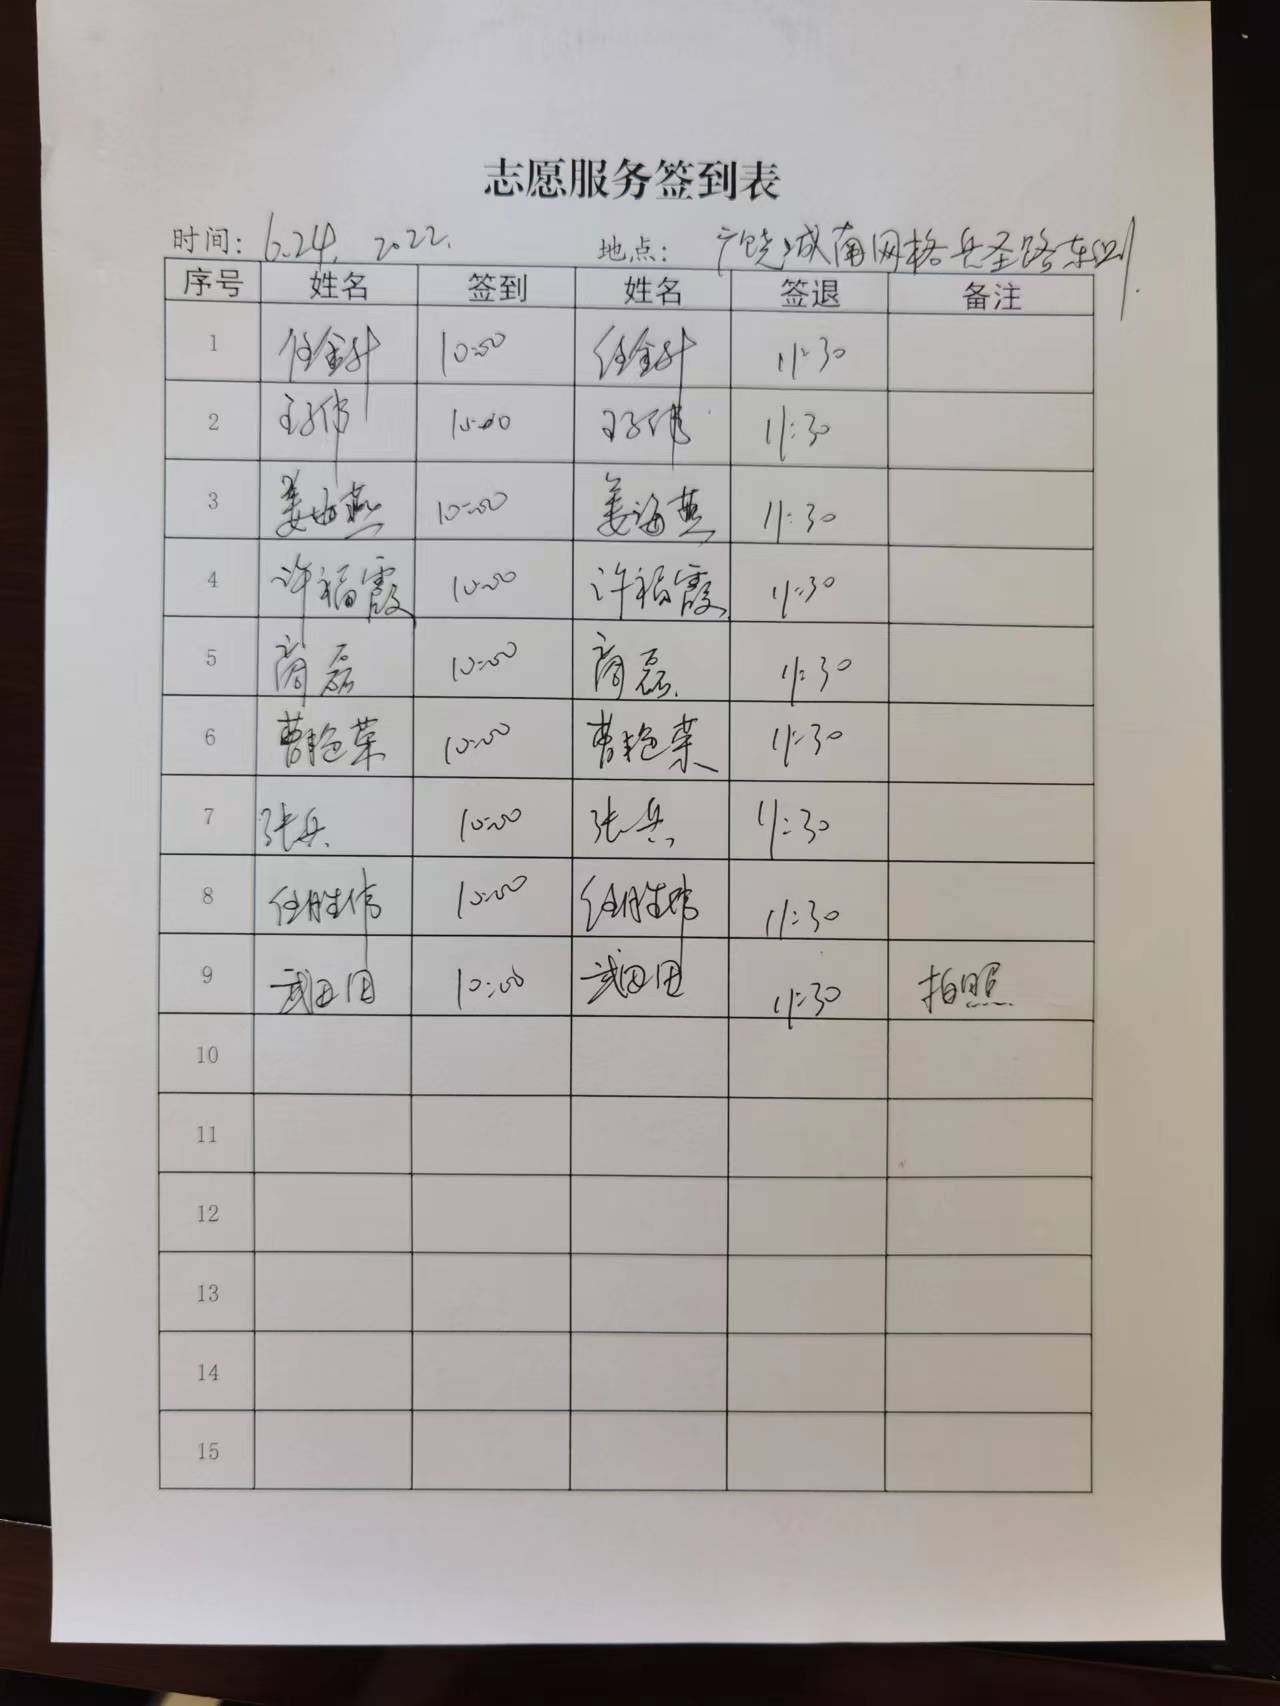 志愿服务签到表
时间: 6.24. 2022. 地点: 广饶城南网格兵圣路东侧
序号 姓名 签到 姓名 签退 备注
1 任金升 10:00 任金升 11:30
2 10:00 11:30
3 姜海燕 10:00 姜海燕 11:30
4 许福霞 10:00 许福霞 11:30
5 商磊 10:00 商磊 11:30
6 曹艳菜 10:00 曹艳菜 11:30
7 张兵 10:00 张兵 11:30
8 任胜伟 10:00 任胜伟 11:30
9 武田田 10:00 武田田 11:30 拍照
10
11
12
13
14
15